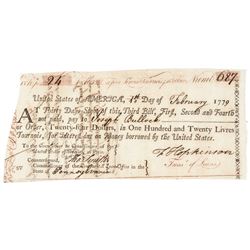 24 Numb. 687
United States of AMERICA, 1st Day of February 1779
AT Thirty Days Sight of this Third Bill, First, Second and Fourth
not paid, pay to Joseph Bullock
or Order, Twenty-four Dollars, in One Hundred and Twenty Livres
Tournois, for Interest due on Money borrowed by the United States.
To the Commissioner or Commissioners of
the United States of America at Paris
Countersigned, Tho Smith
Commissioner of the Continental Loan-Office in the
State of Pennsylvania
F Hopkinson
Treasr. of Loans